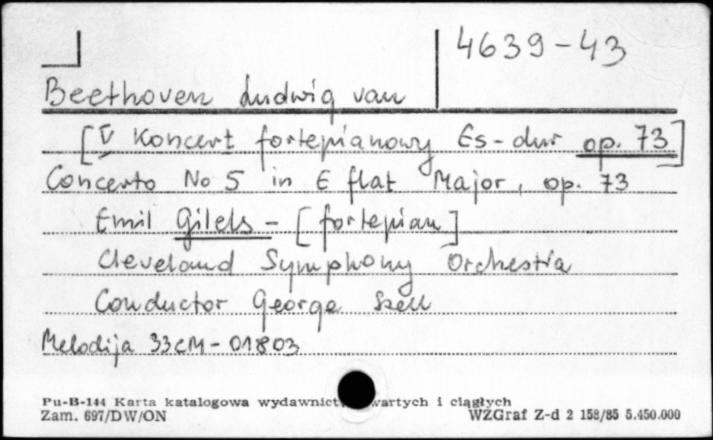 4639-43
Beethoven Ludwig van
[V Koncert fortepianowy Es-dur op. 73]
Concerto No 5 in E flat Major, op. 73
Emil Gilels - [fortepian]
Cleveland Symphony Orchestra
Conductor George Szell
Melodija 33CM-01803
Pu-B-144 Karta katalogowa wydawnict wartych i ciągłych
Zam. 697/DW/ON WZGraf Z-d 2 158/85 5.450.000